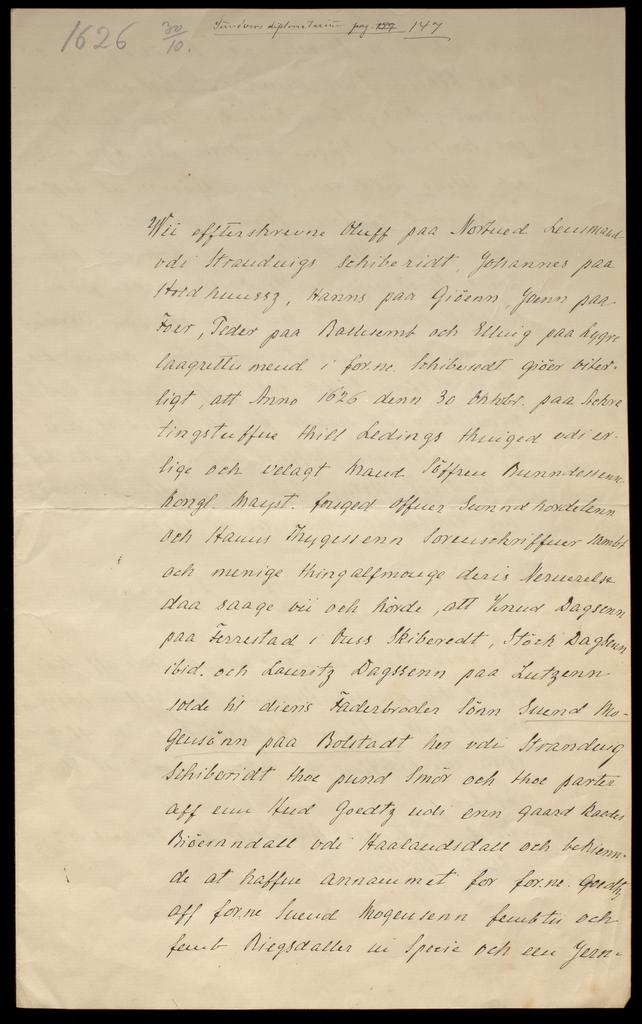 1626 30/10. Sundvors diplomatarium pag. 157 147
Wii effterskrevne Oluff paa Nortued Lensmand
vdi Stranduigs schiberidt, Johannes paa
Hold huussz, Hanns paa Giöenn, Joenn paa
Foer, Peder paa och Elluig paa Lygre
laagrettis mend i for.ne. Schiberedt giöer viter-
ligt, att Anno 1626 denn 30 Oktobr. paa
tingstuffue thill Ledings thinged vdi er-
lige och velagt Mand Söffren
Kongl. Mayst. fouged offuer Sunnd hordelenn
och Hanns Thygessenn Sorenschriffuer sambt
och menige thing almouge deris Neruerelse
daa saage vii och hörde, att Knud Dagsenn
paa Ferrestad i Ouss Skiberedt, Stöck Dagsenn
ibid. och Lauritz Dagssenn paa Lutzenn
solde til dieris Faderbroder Sönn Suend Mo-
gensönn paa Bolstadt her vdi Stranduig
Schiberidt thoe pund Smör och thoe parter
aff enn Hud Goedtz udi enn gaard kaedes
Biöenndall vdi Haalandsdall och bekienn-
de at haffue annammet for for.ne. Goedtz
aff for.ne Suend Mogensenn fembtii och
femb Riegsdaller in Specie och een Jern-